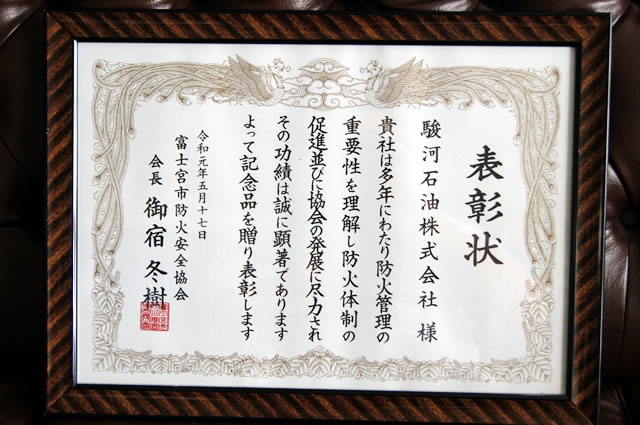 表彰状
駿河石油株式会社 様
貴社は多年にわたり防火管理の
重要性を理解し防火体制の
促進並びに協会の発展に尽力され
その功績は誠に顕著であります
よって記念品を贈り表彰します
令和元年五月十七日
富士宮市防火安全協会
会長 御宿 冬樹